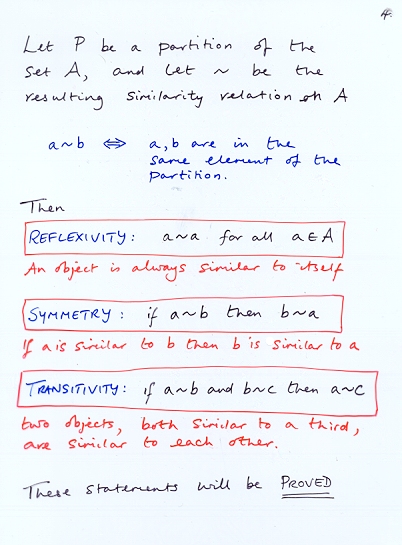 4.
Let P be a partition of the
set A, and let ~ be the
resulting similarity relation on A
a~b ⇔ a, b are in the
same element of the
partition.
Then
REFLEXIVITY: a~a for all a∈A
An object is always similar to itself
SYMMETRY: if a~b then b~a
If a is similar to b then b is similar to a
TRANSITIVITY: if a~b and b~c then a~c
two objects, both similar to a third,
are similar to each other.
These statements will be PROVED